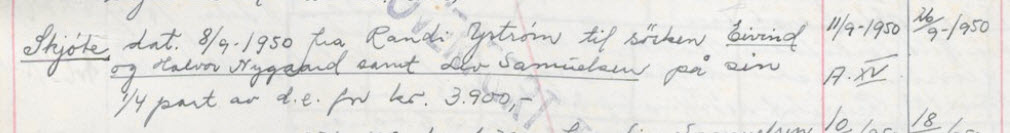 Skjöte, dat. 8/9-1950 fra Randi Yström til søsken Eivind 11/9-1950 26/9-1950
og Halvor Nygaard samt Liv Samuelsen på sin A. XV
1/4 part av d.e. for kr. 3.900,-
10 18
Samuelsen